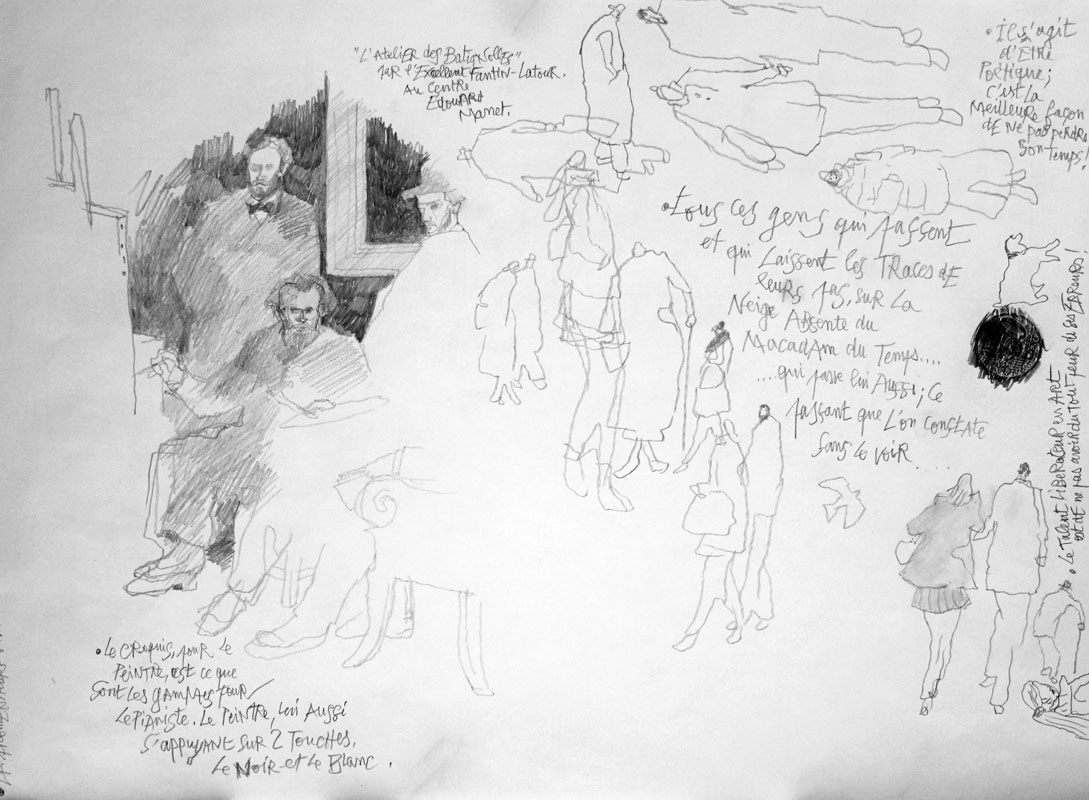 "L'Atelier des Batignolles"
par l'Excellent Fantin-Latour.
Au Centre
Edouard
Manet.
• Il s'agit
d'Etre
Poëtique;
c'est la
Meilleure façon
de ne pas perdre
son temps!
• tous ces gens qui passent
et qui Laissent les Traces de
leurs pas, sur la
Neige Absente du
Macadam du Temps....
....qui passe lui Aussi; Ce
passant que l'on constate
sans le voir....
• Le Talent Liberateur en Art
est de ne pas avoir du tout peur de ses Erreurs!
• Le croquis, pour le
Peintre, est ce que
sont les gammes pour
le Pianiste. Le Peintre, lui Aussi
s'appuyant sur 2 Touches,
le Noir et le Blanc.